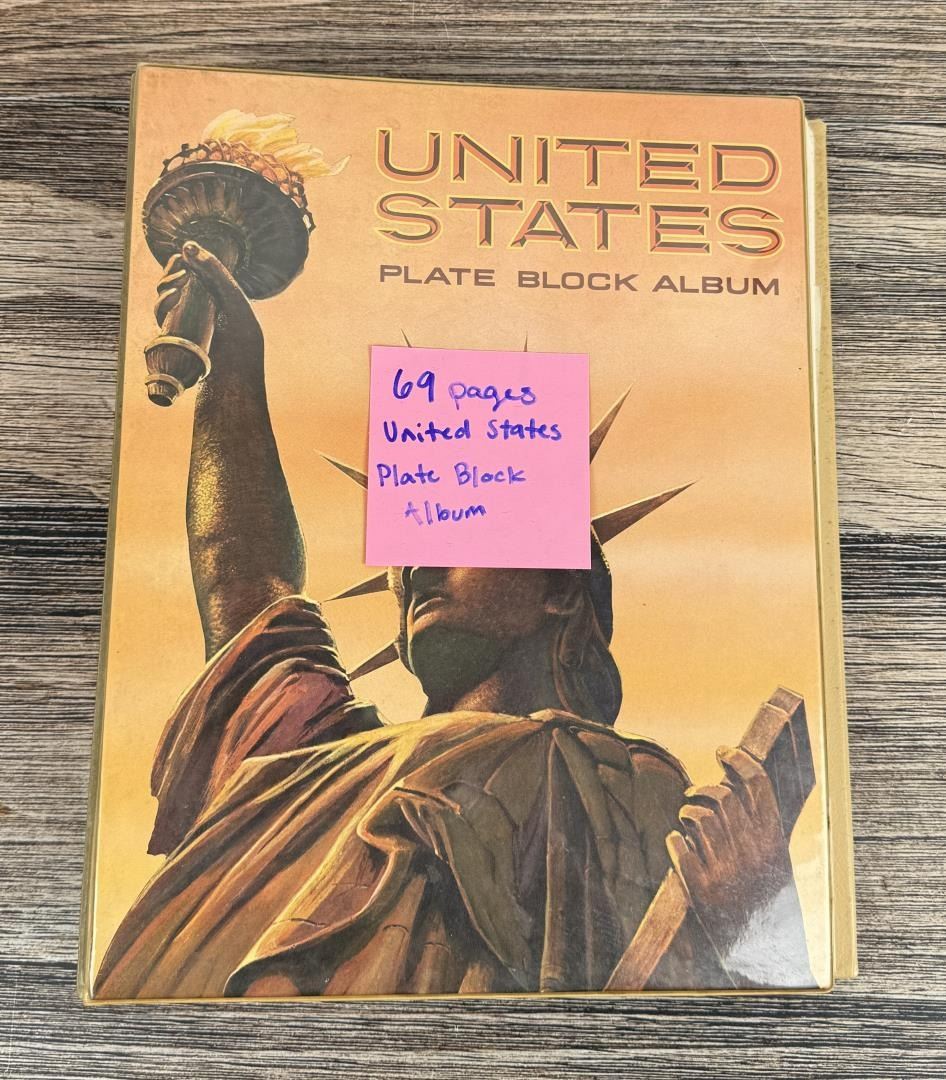 UNITED
STATES
PLATE BLOCK ALBUM
69 pages
United States
Plate Block
Album